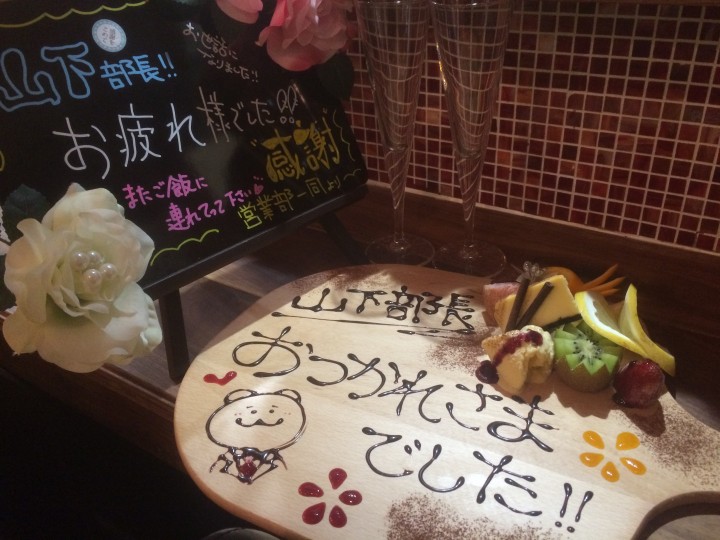 山下部長!!
お世話に
なりました!!
お疲れ様でした!!
感謝
またご飯に
連れてって下さい
営業部一同より
山下部長
おつかれさま
でした!!